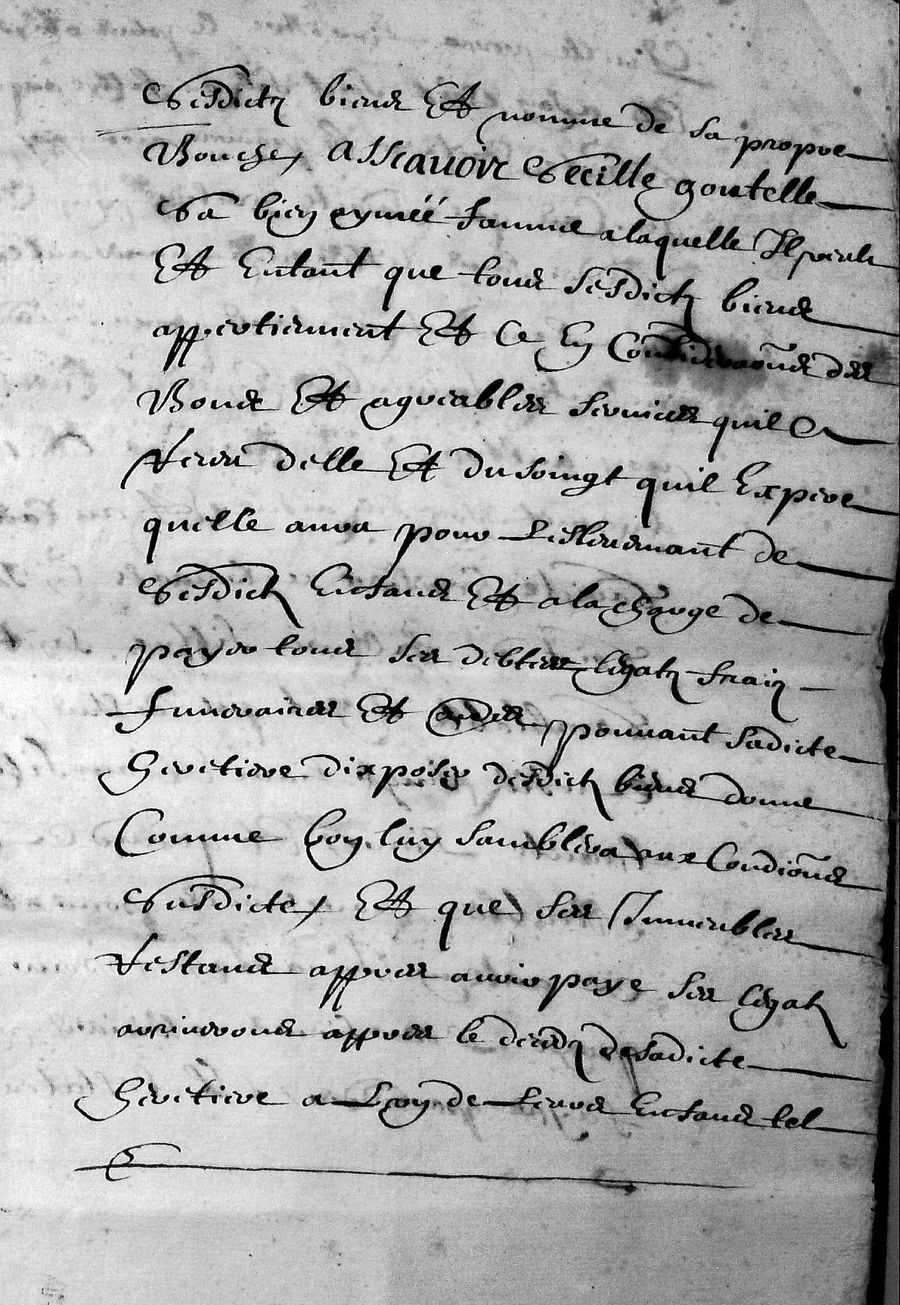 Sesdictz biens Et nomme de sa propre
Bouche, Asscavoir Secille goutelle
Sa bien aymée famme a laquelle Il
Et Entant que tous sesdictz biens
appertiennent Et Ce En Considerations des
Bons Et agreables services quil a
Receu delle Et du soingt quil Expere
quelle aura pour Leslevemant de
Sesdictz Enfans Et a la charge de
payer tous ses debtes legatz fraiz
funeraires Et autres pouvant sadicte
heretiere dixposer desdictz biens donne
Comme bon luy samblera aux Condions
Susdicte, Et que ses Immeubles
Restans appres avoir paye ses legatz
arriveront appres le decedz de sadicte
heretiere a Lung de Leurs Enfans tel